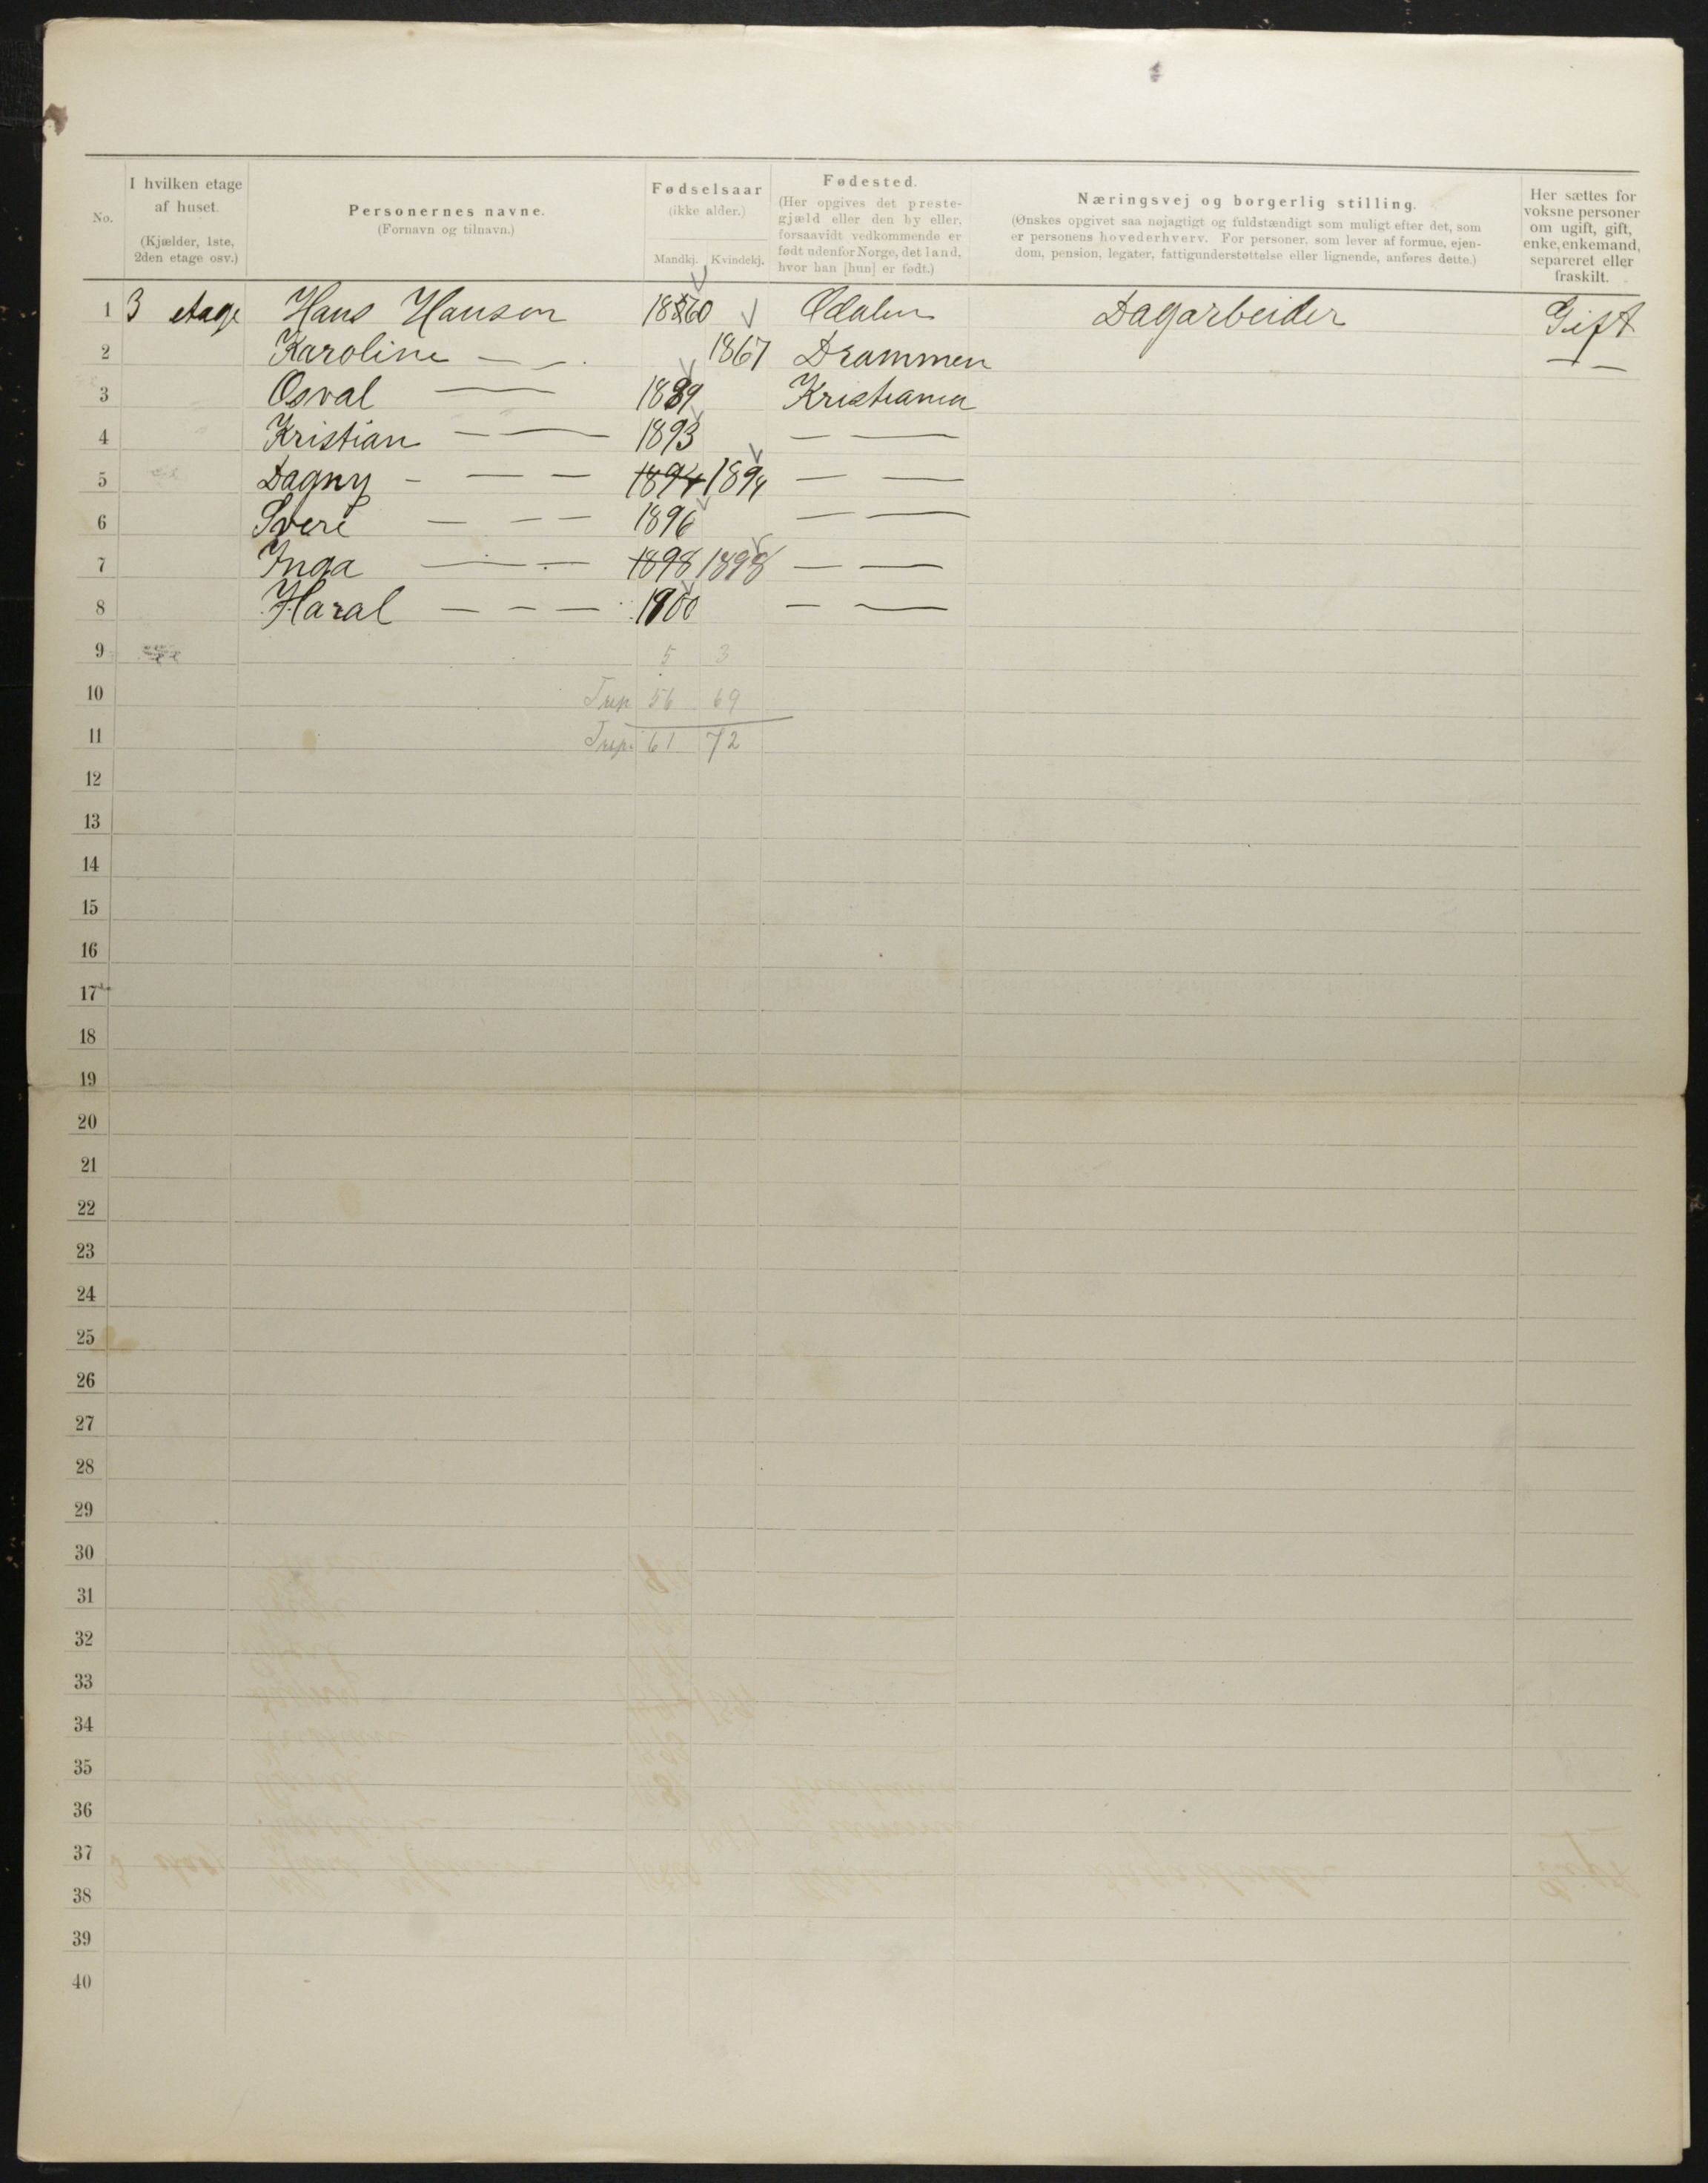 No.
I hvilken etage af huset.
(Kjælder, 1ste, 2den etage osv.)
Personernes navne.
(Fornavn og tilnavn.)
Fødselsaar
(ikke alder.)
Mandkj. Kvindekj.
Fødested.
(Her opgives det prestegjæld eller den by eller, forsaavidt vedkommende er født udenfor Norge, det land, hvor han [hun] er født.)
Næringsvej og borgerlig stilling.
(Ønskes opgivet saa nøjagtigt og fuldstændigt som muligt efter det, som er personens hovederhverv. For personer, som lever af formue, ejendom, pension, legater, fattigunderstøttelse eller lignende, anføres dette.)
Her sættes for voksne personer om ugift, gift, enke, enkemand, separeret eller fraskilt.
1 3 etage Hans Hansen 1860 Odalen Dagarbeider Gift
2 Karoline — — 1867 Drammen — —
3 Osval — 1889 Kristiania
4 Kristian — — 1893 — —
5 Dagny - — — 1894 1894 — —
6 Sveré — — — 1896 — —
7 Inga — - — 1898 1898 — —
8 Haral — — — 1900 — —
9 5 3
10 56 69
11 61 72
12
13
14
15
16
17
18
19
20
21
22
23
24
25
26
27
28
29
30
31
32
33
34
35
36
37
38
39
40